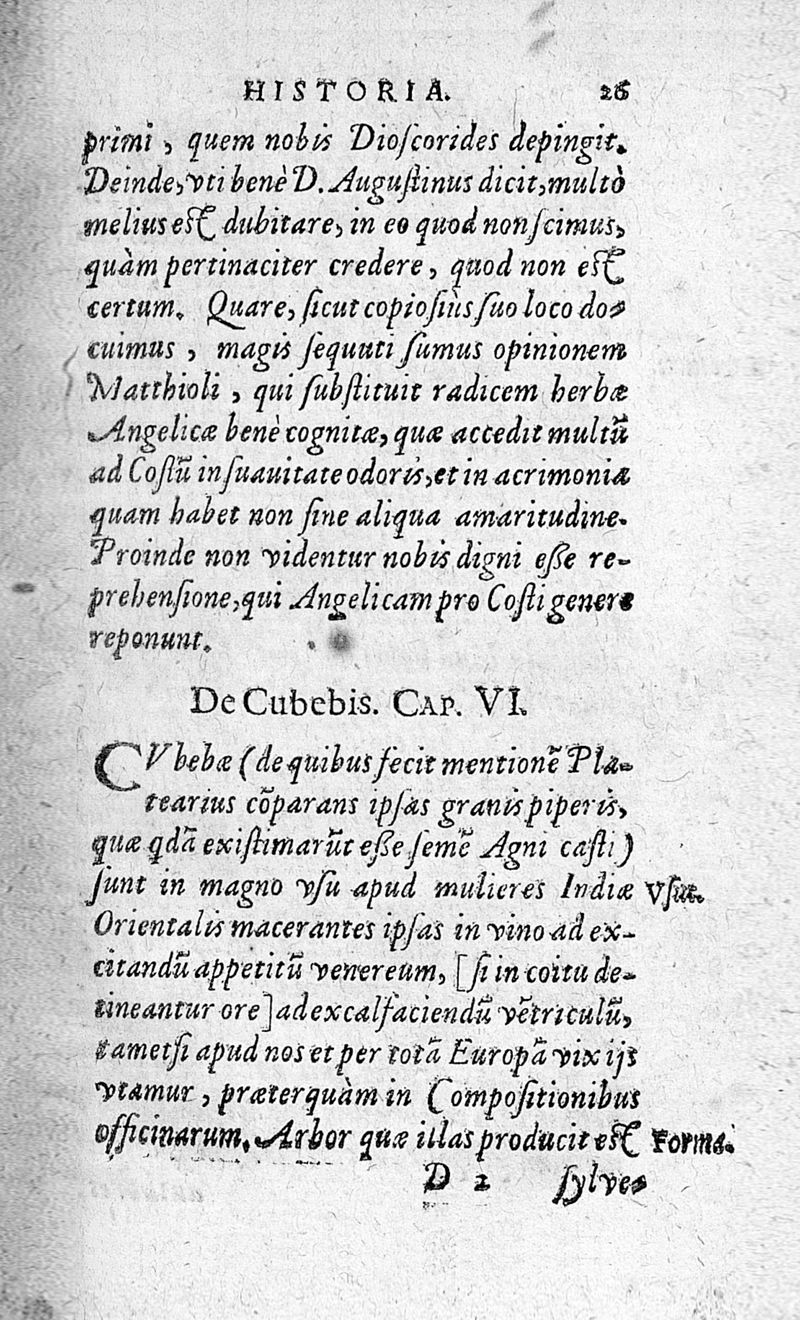 HISTORIA. 26
primi, quem nobis Dioſcorides depingit.
Deinde, vti benè D. Auguſtinus dicit, multò
melius eſt dubitare, in eo quod non ſcimus,
quàm pertinaciter credere, quod non eſt
certum. Quare, ſicut copioſiùs ſuo loco do-
cuimus, magis ſequuti ſumus opinionem
Matthioli, qui ſubſtituit radicem herbæ
Angelicæ benè cognitæ, quæ accedit multũ
ad Coſtũ in ſuauitate odoris, et in acrimonia
quam habet non ſine aliqua amaritudine.
Proinde non videntur nobis digni eſſe re-
prehenſione, qui Angelicam pro Coſti genere
reponunt.
De Cubebis. CAP. VI.
CVbebæ (de quibus fecit mentionẽ Pla-
tearius cõparans ipſas granis piperis,
quæ qdã exiſtimarũt eſſe ſemẽ Agni caſti)
ſunt in magno vſu apud mulieres Indiæ Vſus.
Orientalis macerantes ipſas in vino ad ex-
citandũ appetitũ venereum, [ſi in coitu de-
tineantur ore] ad excalfaciendũ vẽtriculũ,
tametſi apud nos et per totã Europã vix ijs
vtamur, præterquàm in Compoſitionibus
officinarum. Arbor quæ illas producit eſt Forma.
D 2 ſylve-